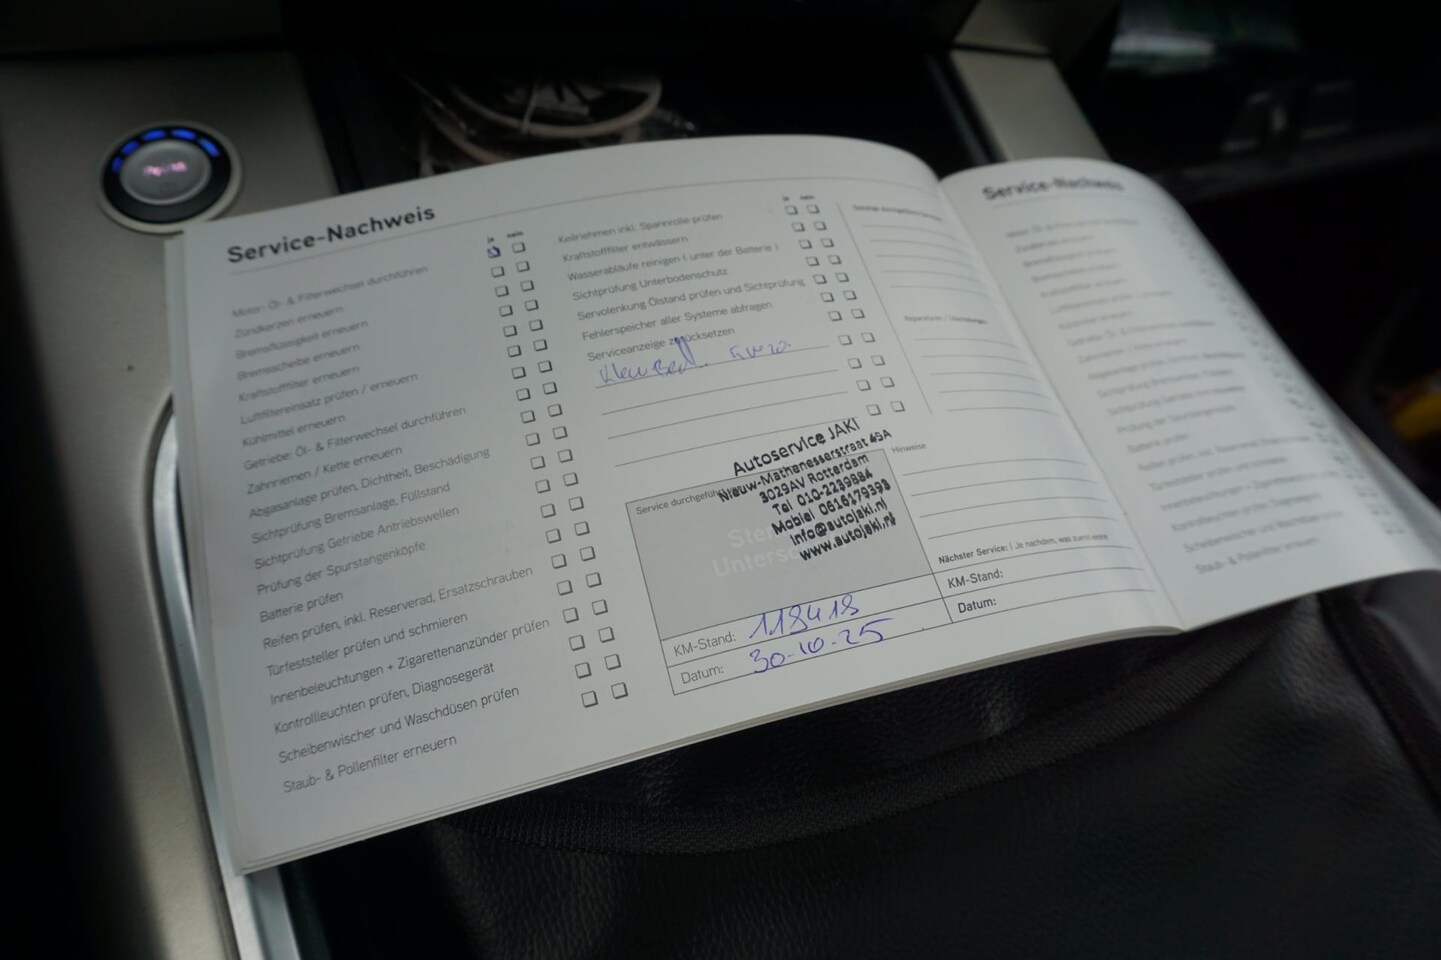 Service-Nachweis
ja nein
Motor: Öl- & Filterwechsel durchführen
Zündkerzen erneuern
Bremsflüssigkeit erneuern
Bremsscheibe erneuern
Kraftstofffilter erneuern
Luftfiltereinsatz prüfen / erneuern
Kühlmittel erneuern
Getriebe: Öl- & Filterwechsel durchführen
Zahnriemen / Kette erneuern
Abgasanlage prüfen, Dichtheit, Beschädigung
Sichtprüfung Bremsanlage, Füllstand
Sichtprüfung Getriebe Antriebswellen
Prüfung der Spurstangenköpfe
Batterie prüfen
Reifen prüfen, inkl. Reserverad, Ersatzschrauben
Türfeststeller prüfen und schmieren
Innenbeleuchtungen + Zigarettenanzünder prüfen
Kontrollleuchten prüfen, Diagnosegerät
Scheibenwischer und Waschdüsen prüfen
Staub- & Pollenfilter erneuern
ja nein
Keilriemen inkl. Spannrolle prüfen
Kraftstofffilter entwässern
Wasserabläufe reinigen ( unter der Batterie )
Sichtprüfung Unterbodenschutz
Servolenkung Ölstand prüfen und Sichtprüfung
Fehlerspeicher aller Systeme abfragen
Serviceanzeige zurücksetzen
Autoservice JAKI
Nieuw-Mathenesserstraat 45A
3029AV Rotterdam
Tel 010-2239884
Mobiel 0616179393
info@autojaki.nl
www.autojaki.nl
Service durchgeführt
KM-Stand: 118418
Datum: 30-10-25
Hinweise
Nächster Service: ( Je nachdem, was zuerst eintritt
KM-Stand:
Datum:
Service-Nachweis
Staub- & Pollenfilter erneuern